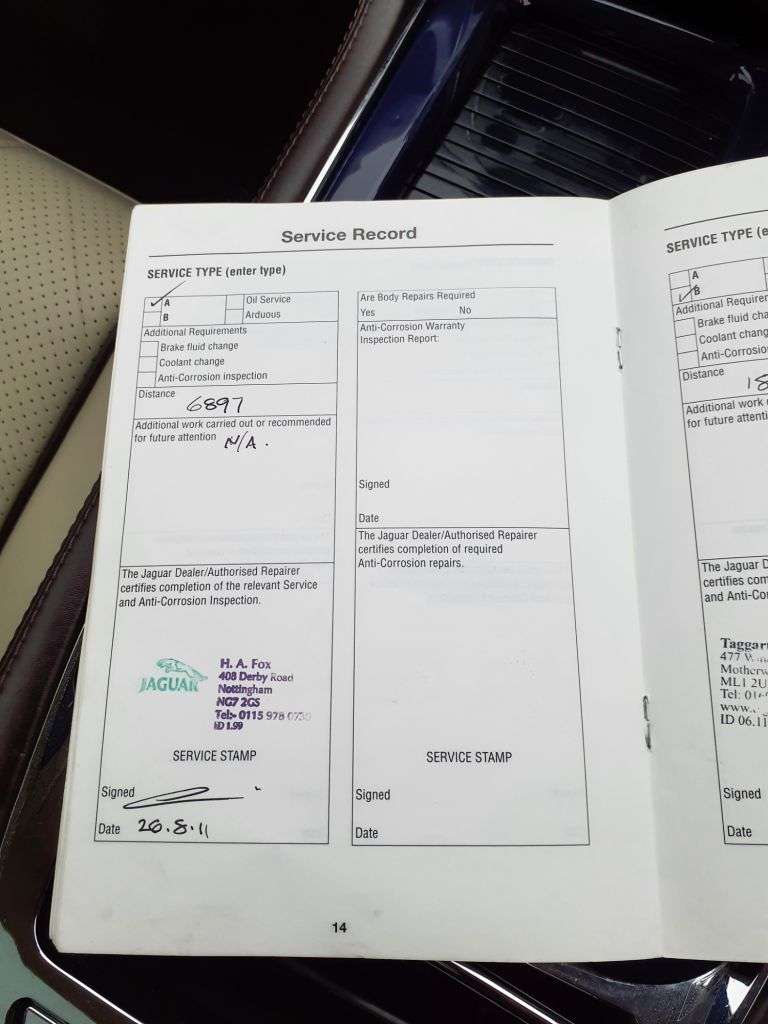 Service Record
SERVICE TYPE (enter type)
A
Oil Service
B
Arduous
Additional Requirements
Brake fluid change
Coolant change
Anti-Corrosion inspection
Distance
6897
Additional work carried out or recommended
for future attention N/A.
The Jaguar Dealer/Authorised Repairer
certifies completion of the relevant Service
and Anti-Corrosion Inspection.
JAGUAR
H. A. Fox
408 Derby Road
Nottingham
NG7 2GS
Tel:- 0115 978
ID 1.99
SERVICE STAMP
Signed
Date 26.8.11
Are Body Repairs Required
Yes No
Anti-Corrosion Warranty
Inspection Report:
Signed
Date
The Jaguar Dealer/Authorised Repairer
certifies completion of required
Anti-Corrosion repairs.
SERVICE STAMP
Signed
Date
14
SERVICE TYPE (e
A
B
Additional Requirer
Brake fluid cha
Coolant chang
Anti-Corrosio
Distance
18
Additional work
for future attenti
The Jaguar D
certifies com
and Anti-Co
Taggar
477
Motherw
ML1 2U
Tel:
www.
ID 06.11
Signed
Date